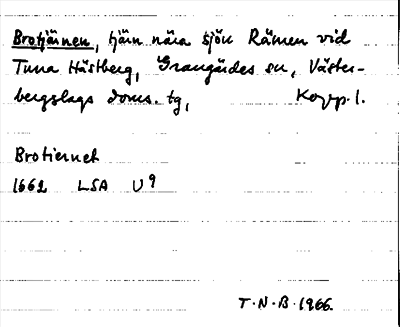 Brotjärnen, tjärn nära sjön Rämen vid
Tuna Hästberg, Grangärdes sn, Väster-
bergslags doms. tg, Kopp. l.
Brotiernet
1662 LSA U 9
T.N.B. 1966.